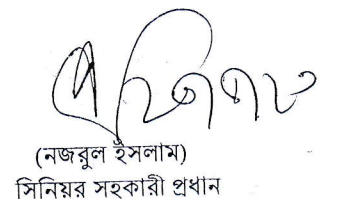 (নজরুল ইসলাম)
সিনিয়র সহকারী প্রধান